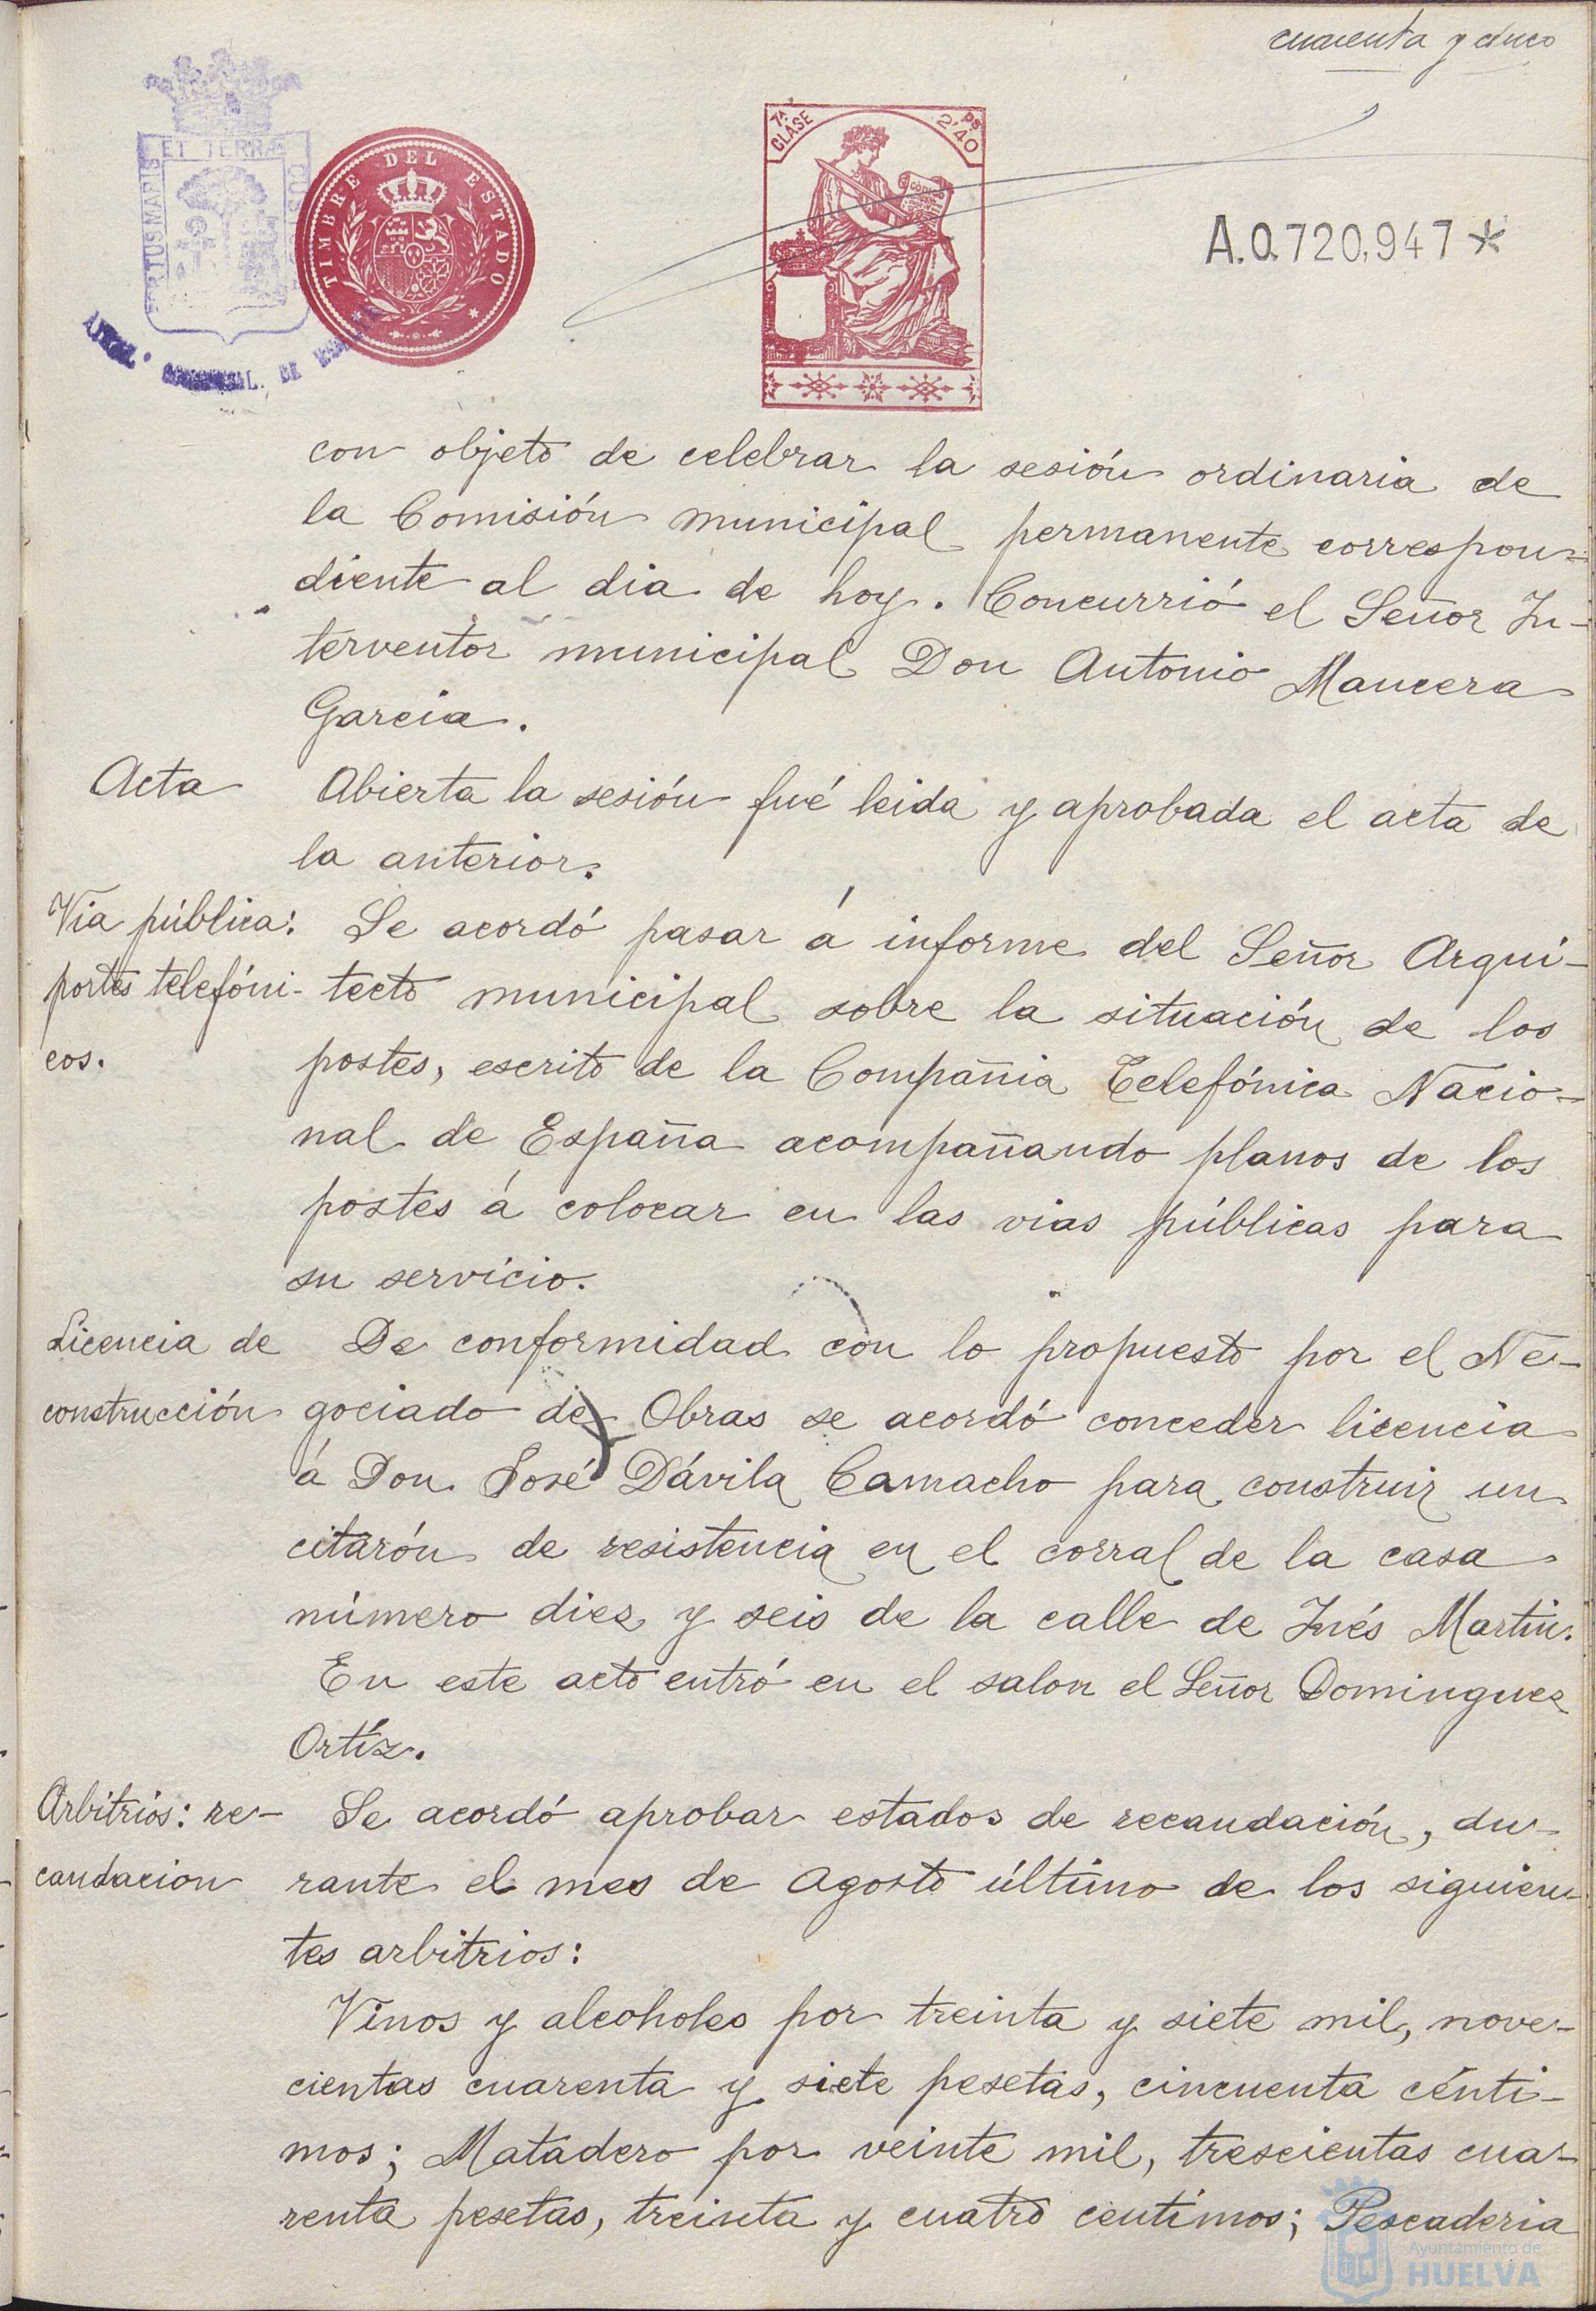 cuarenta y cinco
ET TERRA
PORTUS MARIS
TIMBRE DEL ESTADO
7ª CLASE
PS 2'40
CODIGO
A.0.720,947*
con objeto de celebrar la sesión ordinaria de
la Comisión municipal permanente correspon-
diente al dia de hoy. Concurrió el Señor In-
terventor municipal Don Antonio Mancera
Garcia.
Acta
Abierta la sesión fué leida y aprobada el acta de
la anterior.
Via pública:
portes telefóni-
cos.
Se acordó pasar á informe del Señor Arqui-
tecto municipal sobre la situación de los
postes, escrito de la Compañia Telefónica Nacio-
nal de España acompañando planos de los
postes á colocar en las vias públicas para
su servicio.
Licencia de
construcción
De conformidad con lo propuesto por el Ne-
gociado de Obras se acordó conceder licencia
á Don José Dávila Camacho para construir un
citarón de resistencia en el corral de la casa
número diez y seis de la calle de Inés Martin.
En este acto entró en el salon el Señor Dominguez
Ortíz.
Arbitrios: re-
caudacion
Se acordó aprobar estados de recaudación, du-
rante el mes de Agosto último de los siguien-
tes arbitrios:
Vinos y alcoholes por treinta y siete mil, nove-
cientas cuarenta y siete pesetas, cincuenta cénti-
mos; Matadero por veinte mil, trescientas cua-
renta pesetas, treinta y cuatro centimos; Pescaderia
Ayuntamiento de
HUELVA